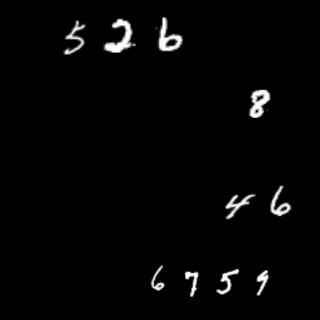 526
8
46
6759